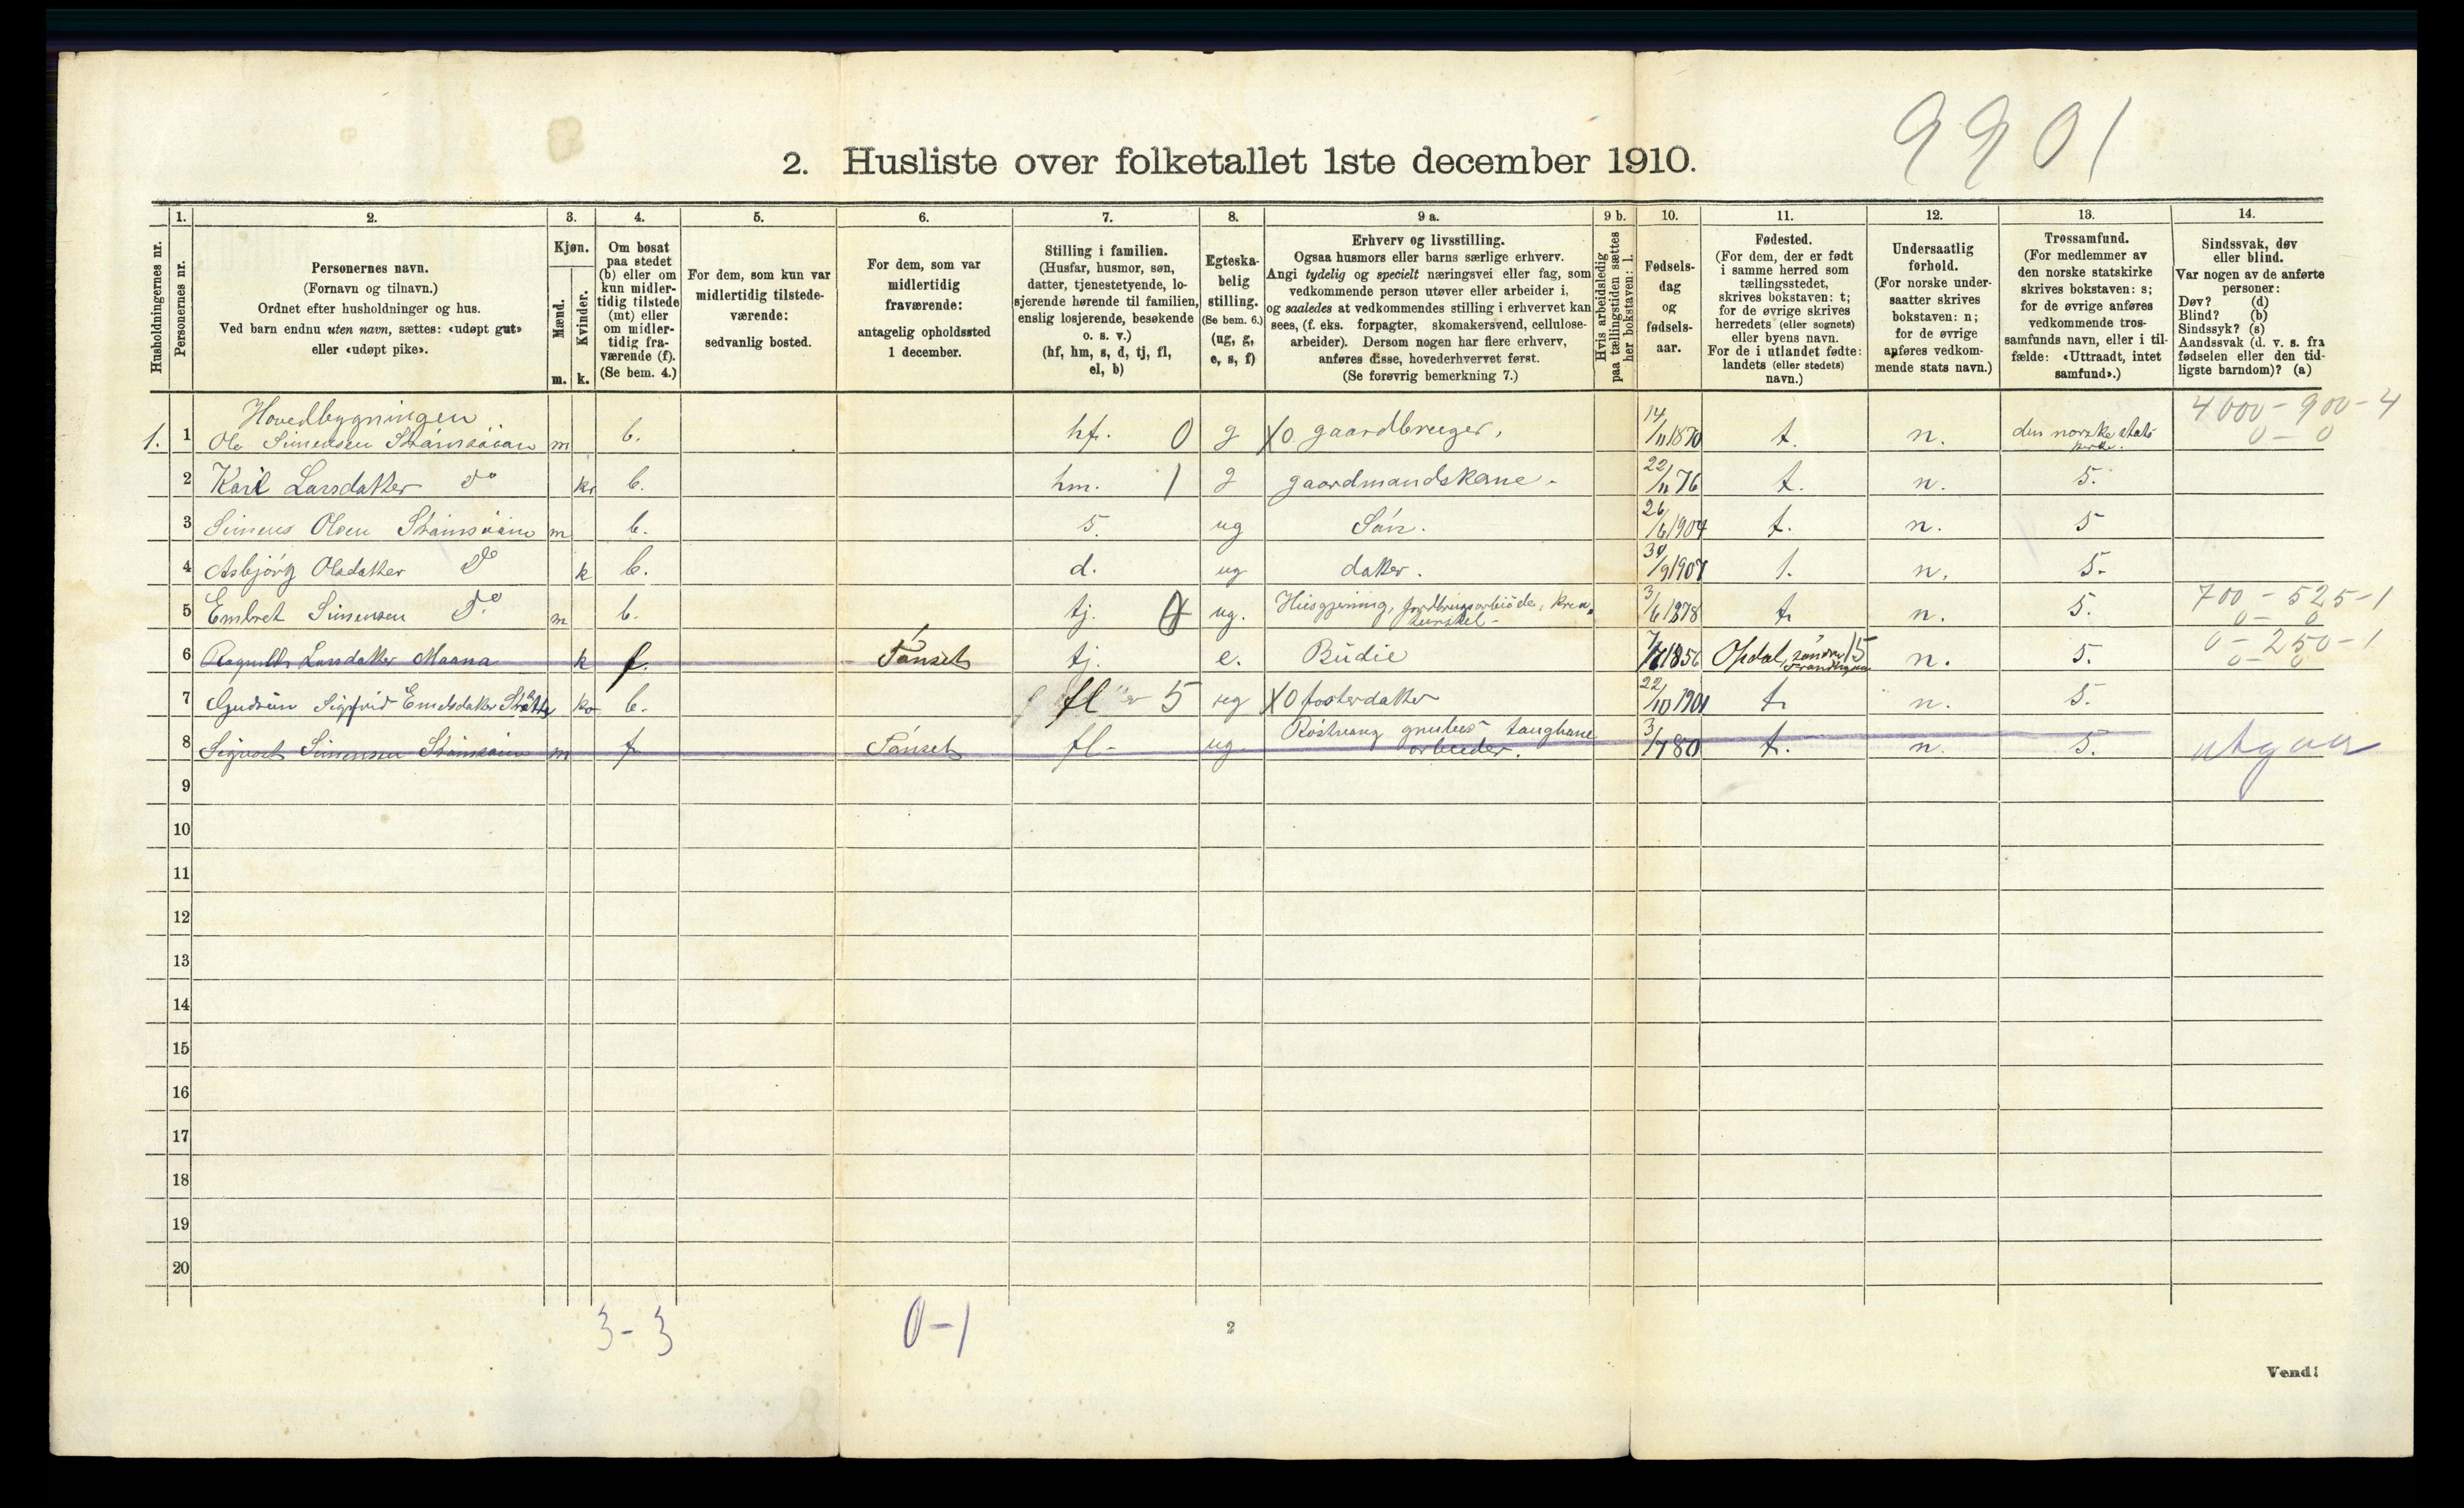 9901
2. Husliste over folketallet 1ste december 1910.
Husholdningernes nr.
1.
Personernes nr.
2.
Personernes navn.
(Fornavn og tilnavn.)
Ordnet efter husholdninger og hus.
Ved barn endnu uten navn, sættes: «udøpt gut»
eller «udøpt pike».
3.
Kjøn.
Mænd.
m.
Kvinder.
k.
4.
Om bosat
paa stedet
(b) eller om
kun midler-
tidig tilstede
(mt) eller
om midler-
tidig fra-
værende (f).
(Se bem. 4.)
5.
For dem, som kun var
midlertidig tilstede-
værende:
sedvanlig bosted.
6.
For dem, som var
midlertidig
fraværende:
antagelig opholdssted
1 december.
7.
Stilling i familien.
(Husfar, husmor, søn,
datter, tjenestetyende, lo-
sjerende hørende til familien,
enslig losjerende, besøkende
o. s. v.)
(hf, hm, s, d, tj, fl,
el, b)
8.
Egteska-
belig
stilling.
(Se bem. 6.)
(ug, g,
e, s, f)
9 a.
Erhverv og livsstilling.
Ogsaa husmors eller barns særlige erhverv.
Angi tydelig og specielt næringsvei eller fag, som
vedkommende person utøver eller arbeider i,
og saaledes at vedkommendes stilling i erhvervet kan
sees, (f. eks. forpagter, skomakersvend, cellulose-
arbeider). Dersom nogen har flere erhverv,
anføres disse, hovederhvervet først.
(Se forøvrig bemerkning 7.)
9 b.
Hvis arbeidsledig
paa tællingstiden sættes
her bokstaven: l.
10.
Fødsels-
dag
og
fødsels-
aar.
11.
Fødested.
(For dem, der er født
i samme herred som
tællingsstedet,
skrives bokstaven: t;
for de øvrige skrives
herredets (eller sognets)
eller byens navn.
For de i utlandet fødte:
landets (eller stedets)
navn.)
12.
Undersaatlig
forhold.
(For norske under-
saatter skrives
bokstaven: n;
for de øvrige
anføres vedkom-
mende stats navn.)
13.
Trossamfund.
(For medlemmer av
den norske statskirke
skrives bokstaven: s;
for de øvrige anføres
vedkommende tros-
samfunds navn, eller i til-
fælde: «Uttraadt, intet
samfund».)
14.
Sindssvak, døv
eller blind.
Var nogen av de anførte
personer:
Døv? (d)
Blind? (b)
Sindssyk? (s)
Aandssvak (d. v. s. fra
fødselen eller den tid-
ligste barndom)? (a)
Hovedbygningen
4000-900-4
1. 1 Ole Simensen m b. hf. 0 g X0 gaardbruger, 14/11 1870 t. n. den norske stats kirke. 0-0
2 Kari Larsdatter do k b. hm. 1 g gaardmandskone. 22/11 76 t. n. s.
3 Simens Olsen m b. s. ug Sön. 26/6 1904 t. n. s
4 Asbjörg Olsdatter do k b. d. ug datter. t. n. s.
5 Embret Simensen do m b. tj. ug. 3/6 1878 t n. s. 700-525-1
0-0
6 Larsdatter Maana k f. Tönset tj. e. Budie 1856 Opdal, söndre 15 n. s. 0-250-1
0-0
7 Gudrun Sigfrid b. fl 5 ug X0 fosterdatter 22/10 1901 t n. s.
8 Sigvart Simensen m f Tönset fl- ug arbeider. 80 t. n. s. utgaar
9
10
11
12
13
14
15
16
17
18
19
20
3-3 0-1
2
Vend!